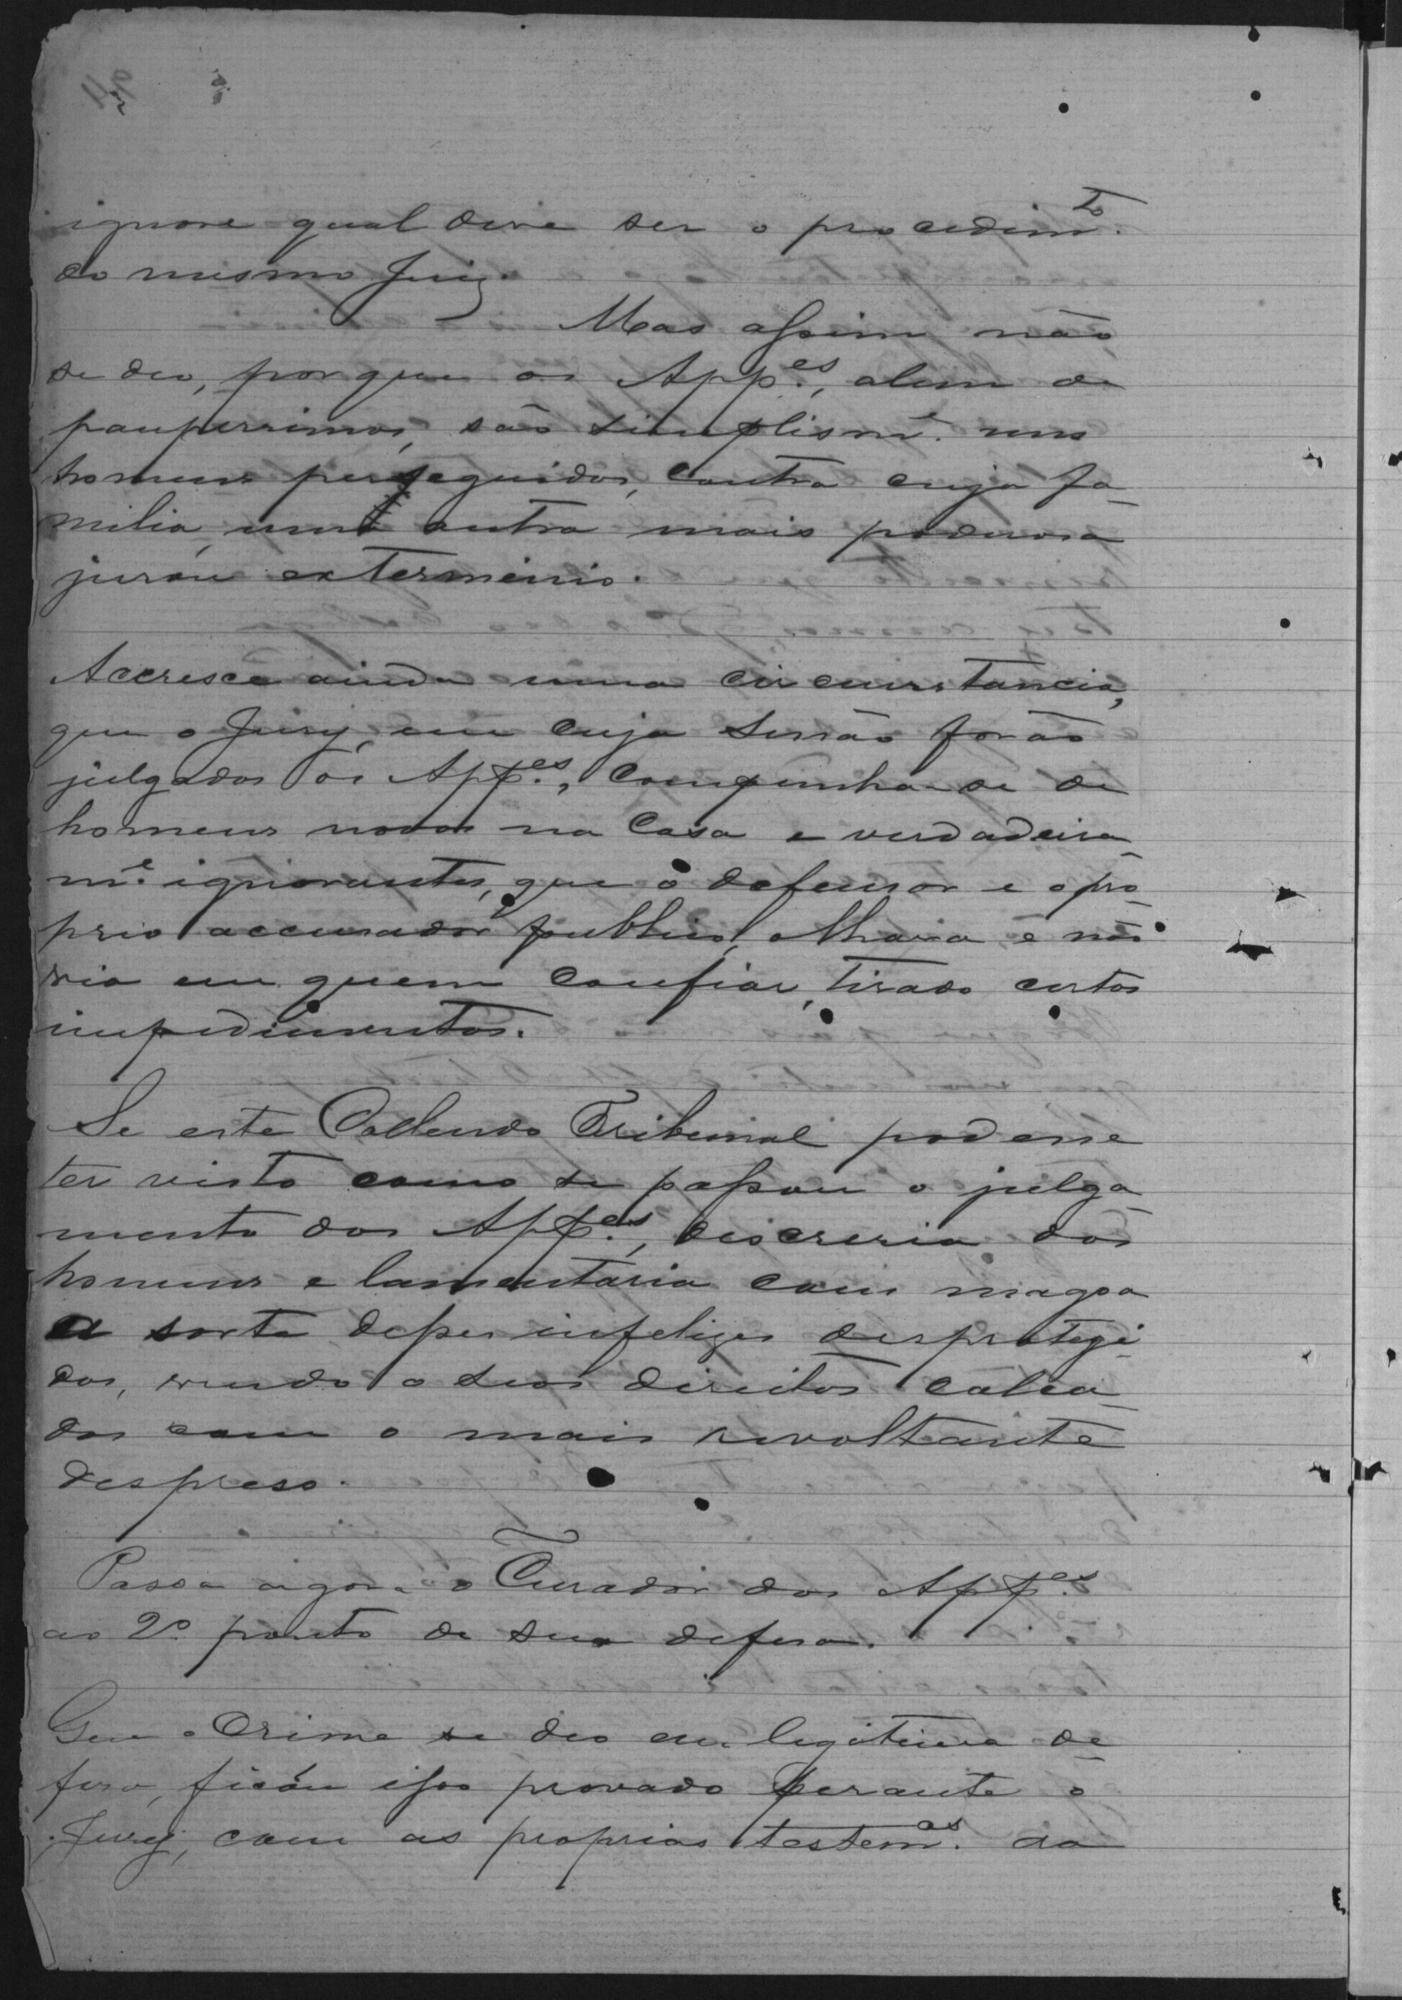 ignore qual deve ser o procedim.to
do mesmo Juiz.
Mas assim não
se deo, porque os App.es, alem de
pauperrimos, são simplism.e uns
homens perseguidos, contra cuja fa-
milia, uma outra mais poderosa
jurou exterminio.
Accresce ainda uma circumstancia,
que o Jury, em cuja sessão forão
julgados os App.es, compunha-se de
homens novos na casa e verdadeira-
m.e ignorantes, que o defensor e o pro-
prio accusador publico, olhava e não
via em quem confiar, tirado certos
impedimentos.
Se este Collendo Tribunal podesse
ter visto como se passou o julga-
mento dos App.es, descreria dos
homens e lamentaria com magoa
a sorte desses infelizes desprotegi-
dos, vendo o seos direitos calca-
dos com o mais revoltante
despreso.
Passa agora o Curador dos App.es
ao 2º ponto de sua defesa.
Que o Crime se deo em legitima de-
fesa, ficou isso provado perante o
Jury, com as proprias testem.as da